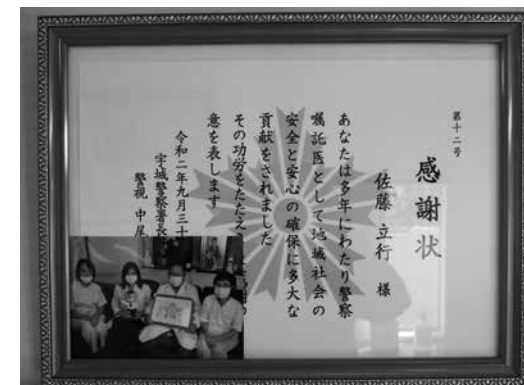 第十二号
感謝状
佐藤 立行 様
あなたは多年にわたり警察
嘱託医として地域社会の
安全と安心の確保に多大な
貢献をされました
その功労をたたえ
意を表します
令和二年九月三十
宇城警察署長
警視 中尾